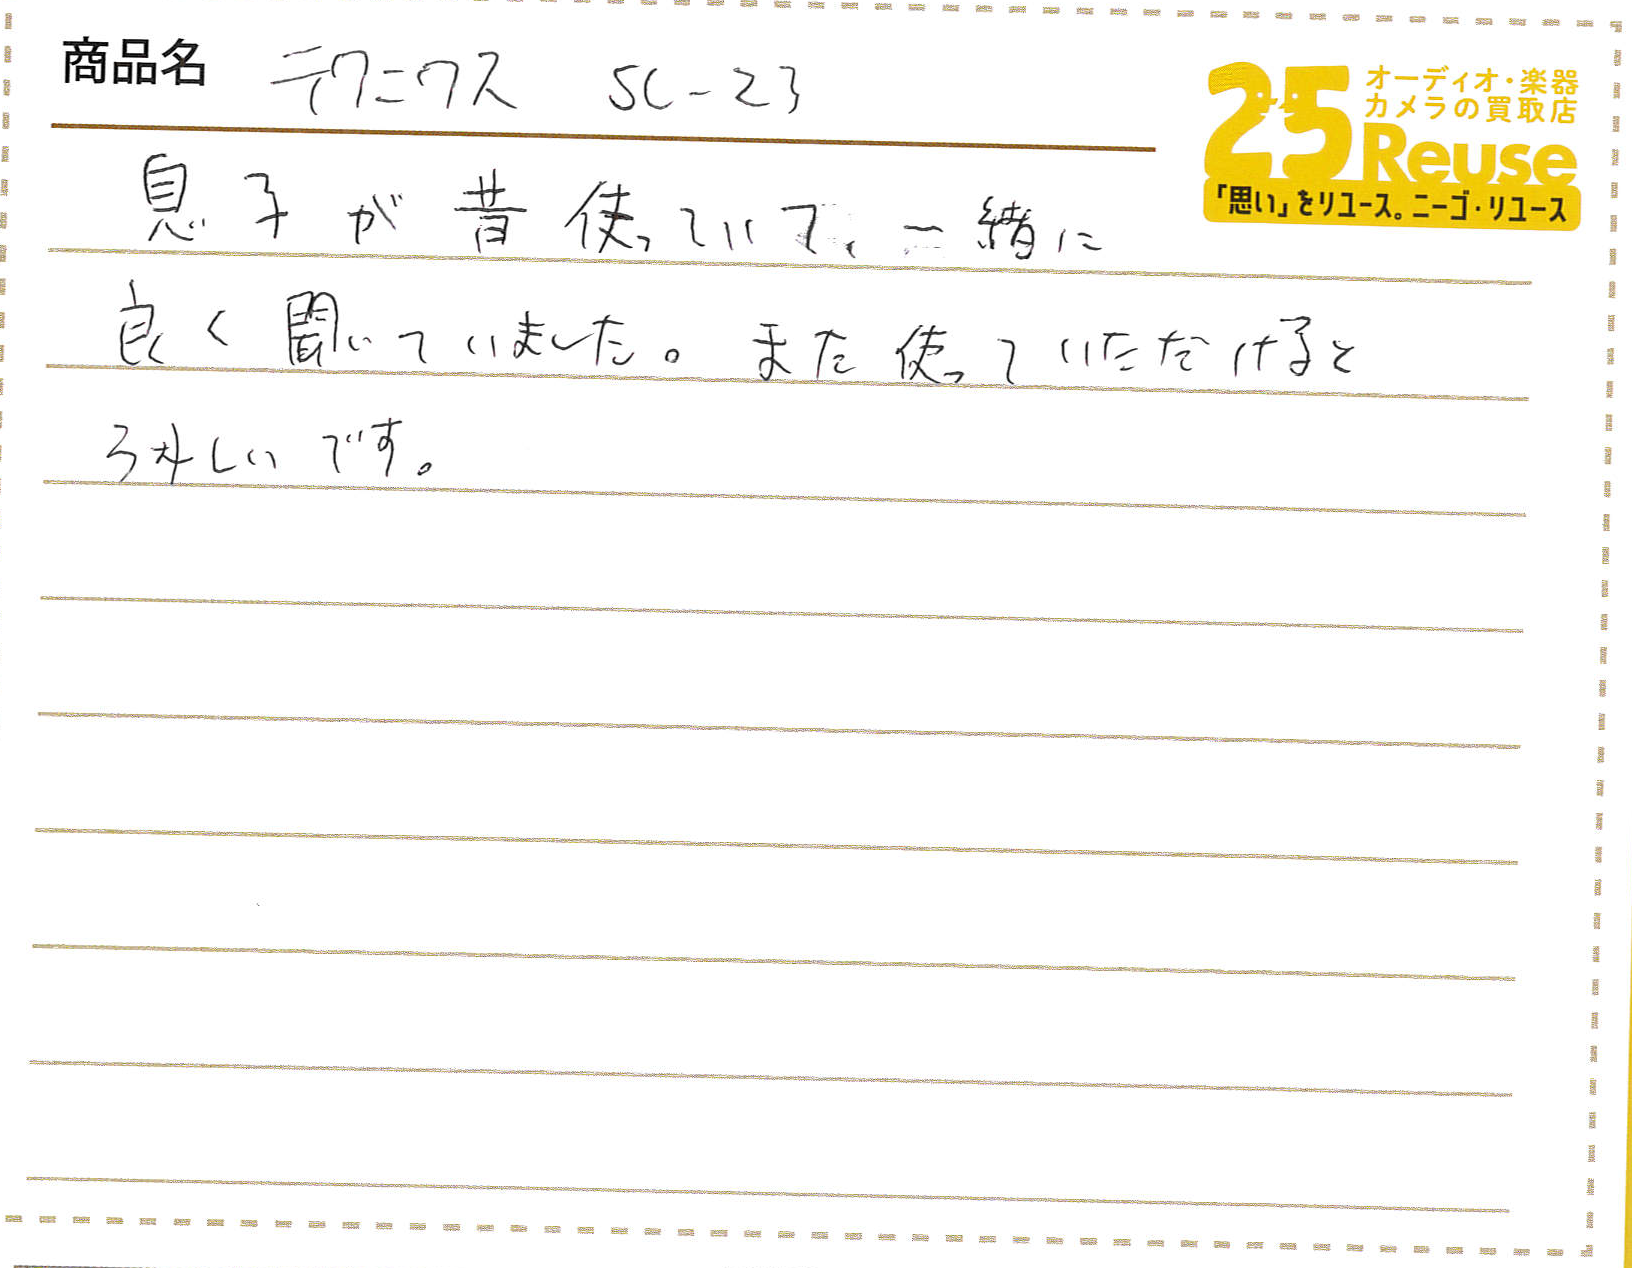 商品名 テクニクス SC-23
25 オーディオ・楽器
カメラの買取店
Reuse
「思い」をリユース。ニーゴ・リユース
息子が昔使っていて、一緒に
良く聞いていました。また使っていただけると
うれしいです。